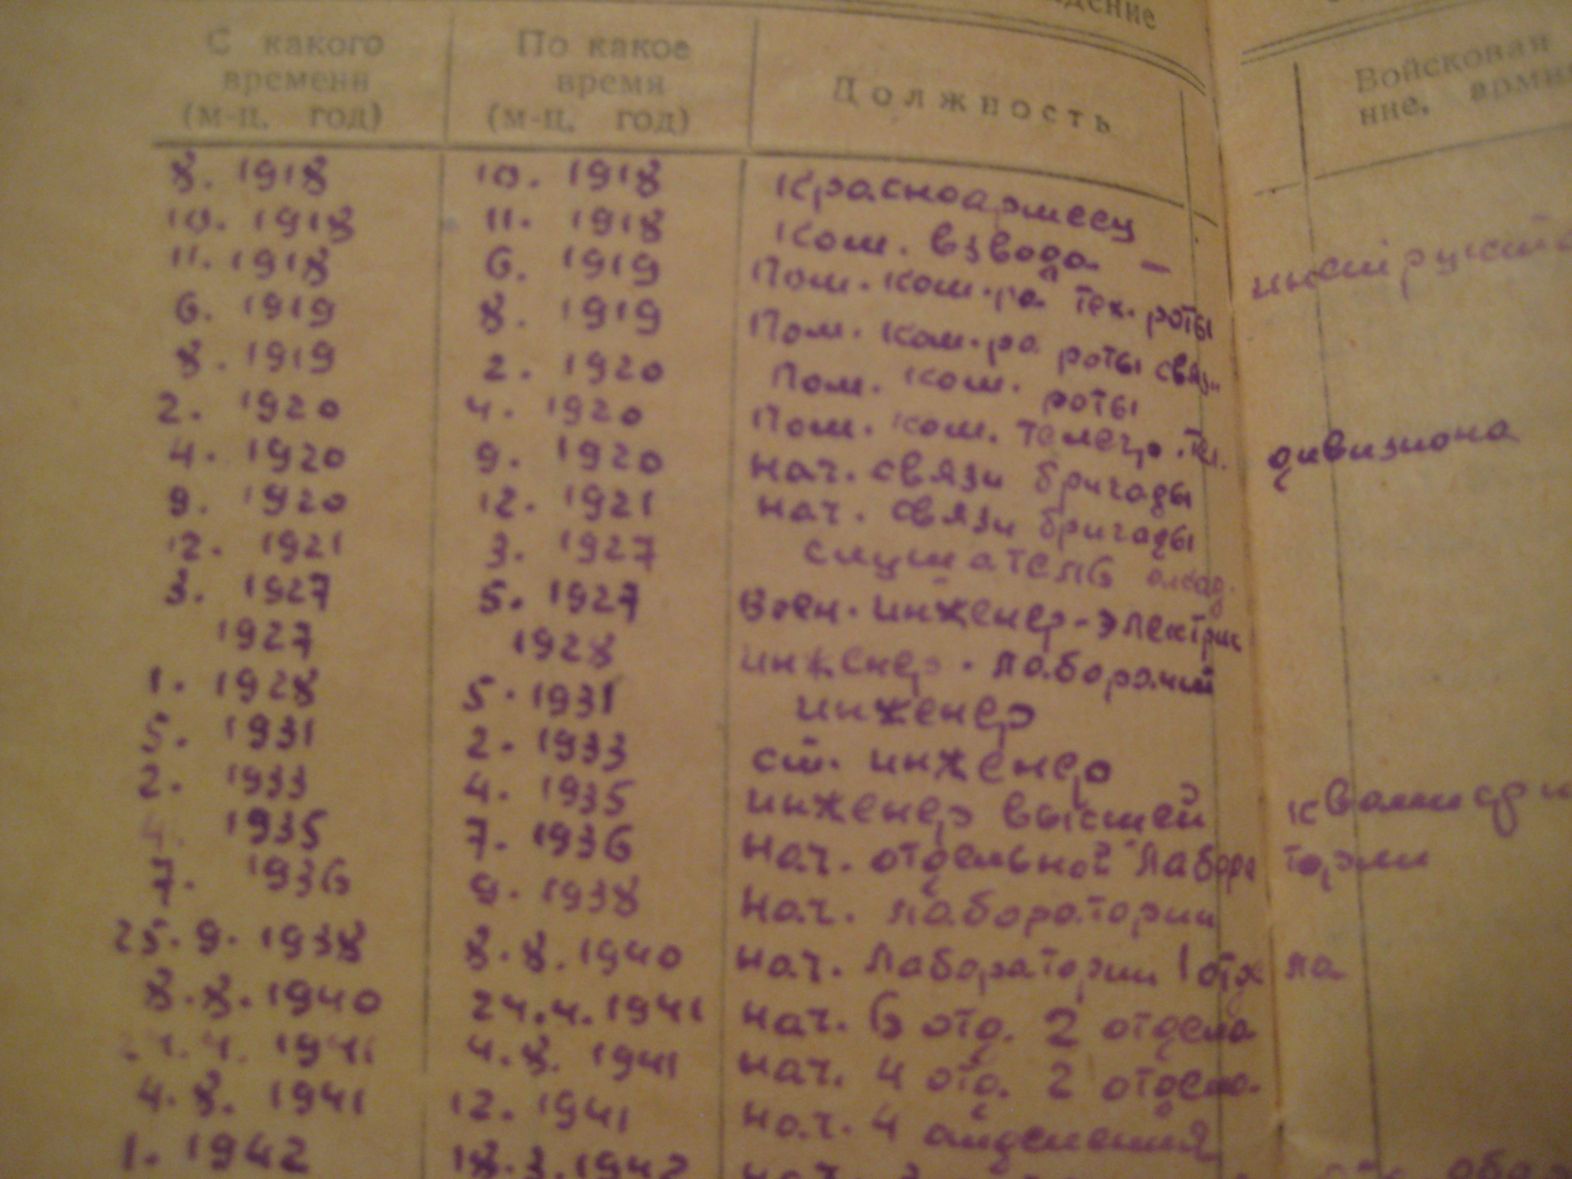 С какого времени (м-ц, год) По какое время (м-ц, год) Должность Войсковая
8. 1918 10. 1918 Красноармеец
10. 1918 11. 1918 Ком. взвода —
11. 1918 6. 1919 Пом. ком-ра тех. роты
6. 1919 8. 1919 Пом. ком-ра роты связи
8. 1919 2. 1920 Пом. ком. роты
2. 1920 4. 1920 Пом. ком. дивизиона
4. 1920 9. 1920 Нач. связи бригады
9. 1920 12. 1921 Нач. связи бригады
12. 1921 3. 1927 слушатель акад.
3. 1927 5. 1927 Воен. инженер-электрик
1927 1928 инженер
1. 1928 5. 1931 инженер
5. 1931 2. 1933 ст. инженер
2. 1933 4. 1935 инженер высшей
4. 1935 7. 1936 Нач. отдельной лабора тории
7. 1936 9. 1938 Нач. лаборатории
25. 9. 1938 8. 8. 1940 Нач. лаборатории 1 отд ла
8. 8. 1940 24. 4. 1941 Нач. 6 отд. 2 отдела
4. 1941 4. 8. 1941 Нач. 4 отд. 2 отдела
4. 8. 1941 12. 1941 Нач. 4 отделения
1. 1942 18. 3. 1942